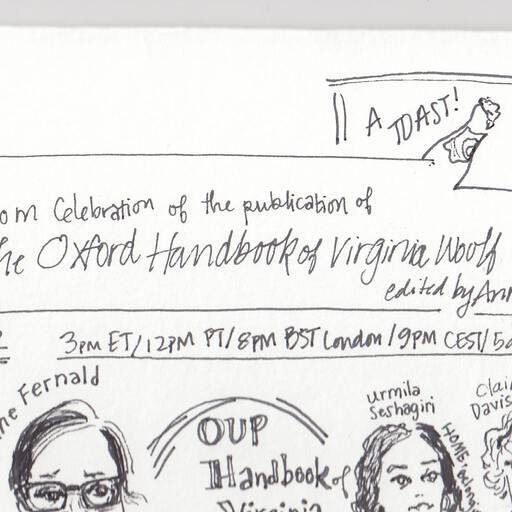 A TOAST!
om Celebration of the publication of
he Oxford Handbook of Virginia Woolf
edited by Ann
3PM ET/12PM PT/8PM BST London/9PM CEST/5a
ne Fernald
OUP
Handbook of
Virginia
Urmila
Seshagiri
HOME
Clai
Davis